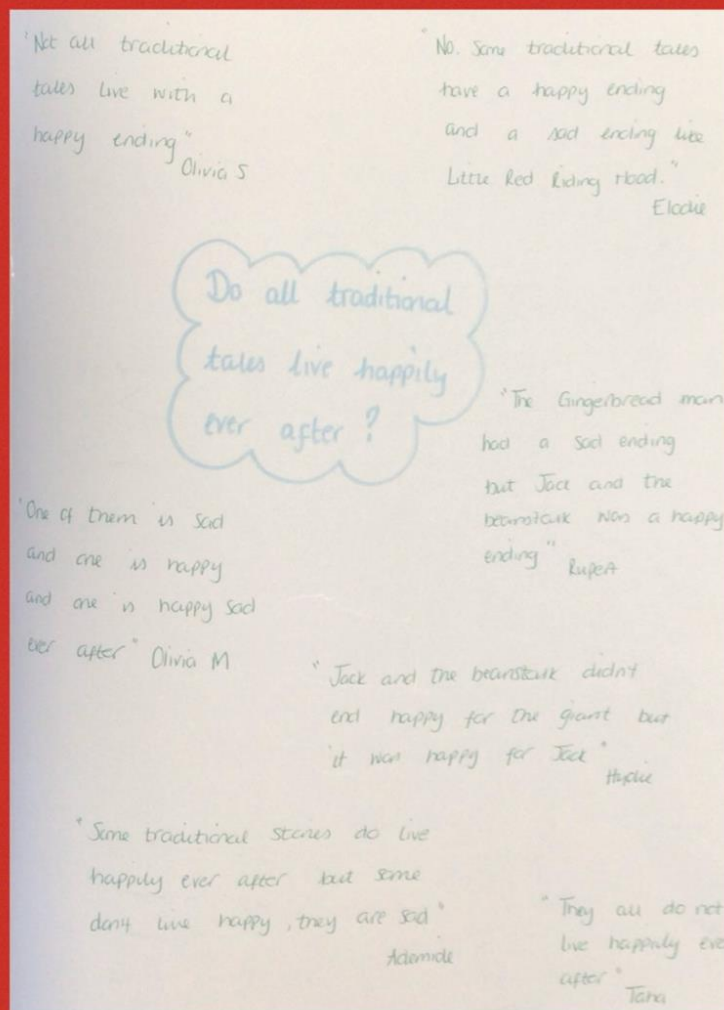 "Not all traditional
tales live with a
happy ending"
Olivia S
"No. Some traditional tales
have a happy ending
and a sad ending like
Little Red Riding Hood."
Elodie
Do all traditional
tales live happily
ever after?
"The Gingerbread man
had a sad ending
but Jack and the
beanstalk was a happy
ending" Rupert
"One of them is sad
and one is happy
and one is happy sad
ever after" Olivia M
"Jack and the beanstalk didn't
end happy for the giant but
it was happy for Jack"
"Some traditional stories do live
happily ever after but some
don't live happy, they are sad"
Ademide
"They all do not
live happily eve
after"
Tana